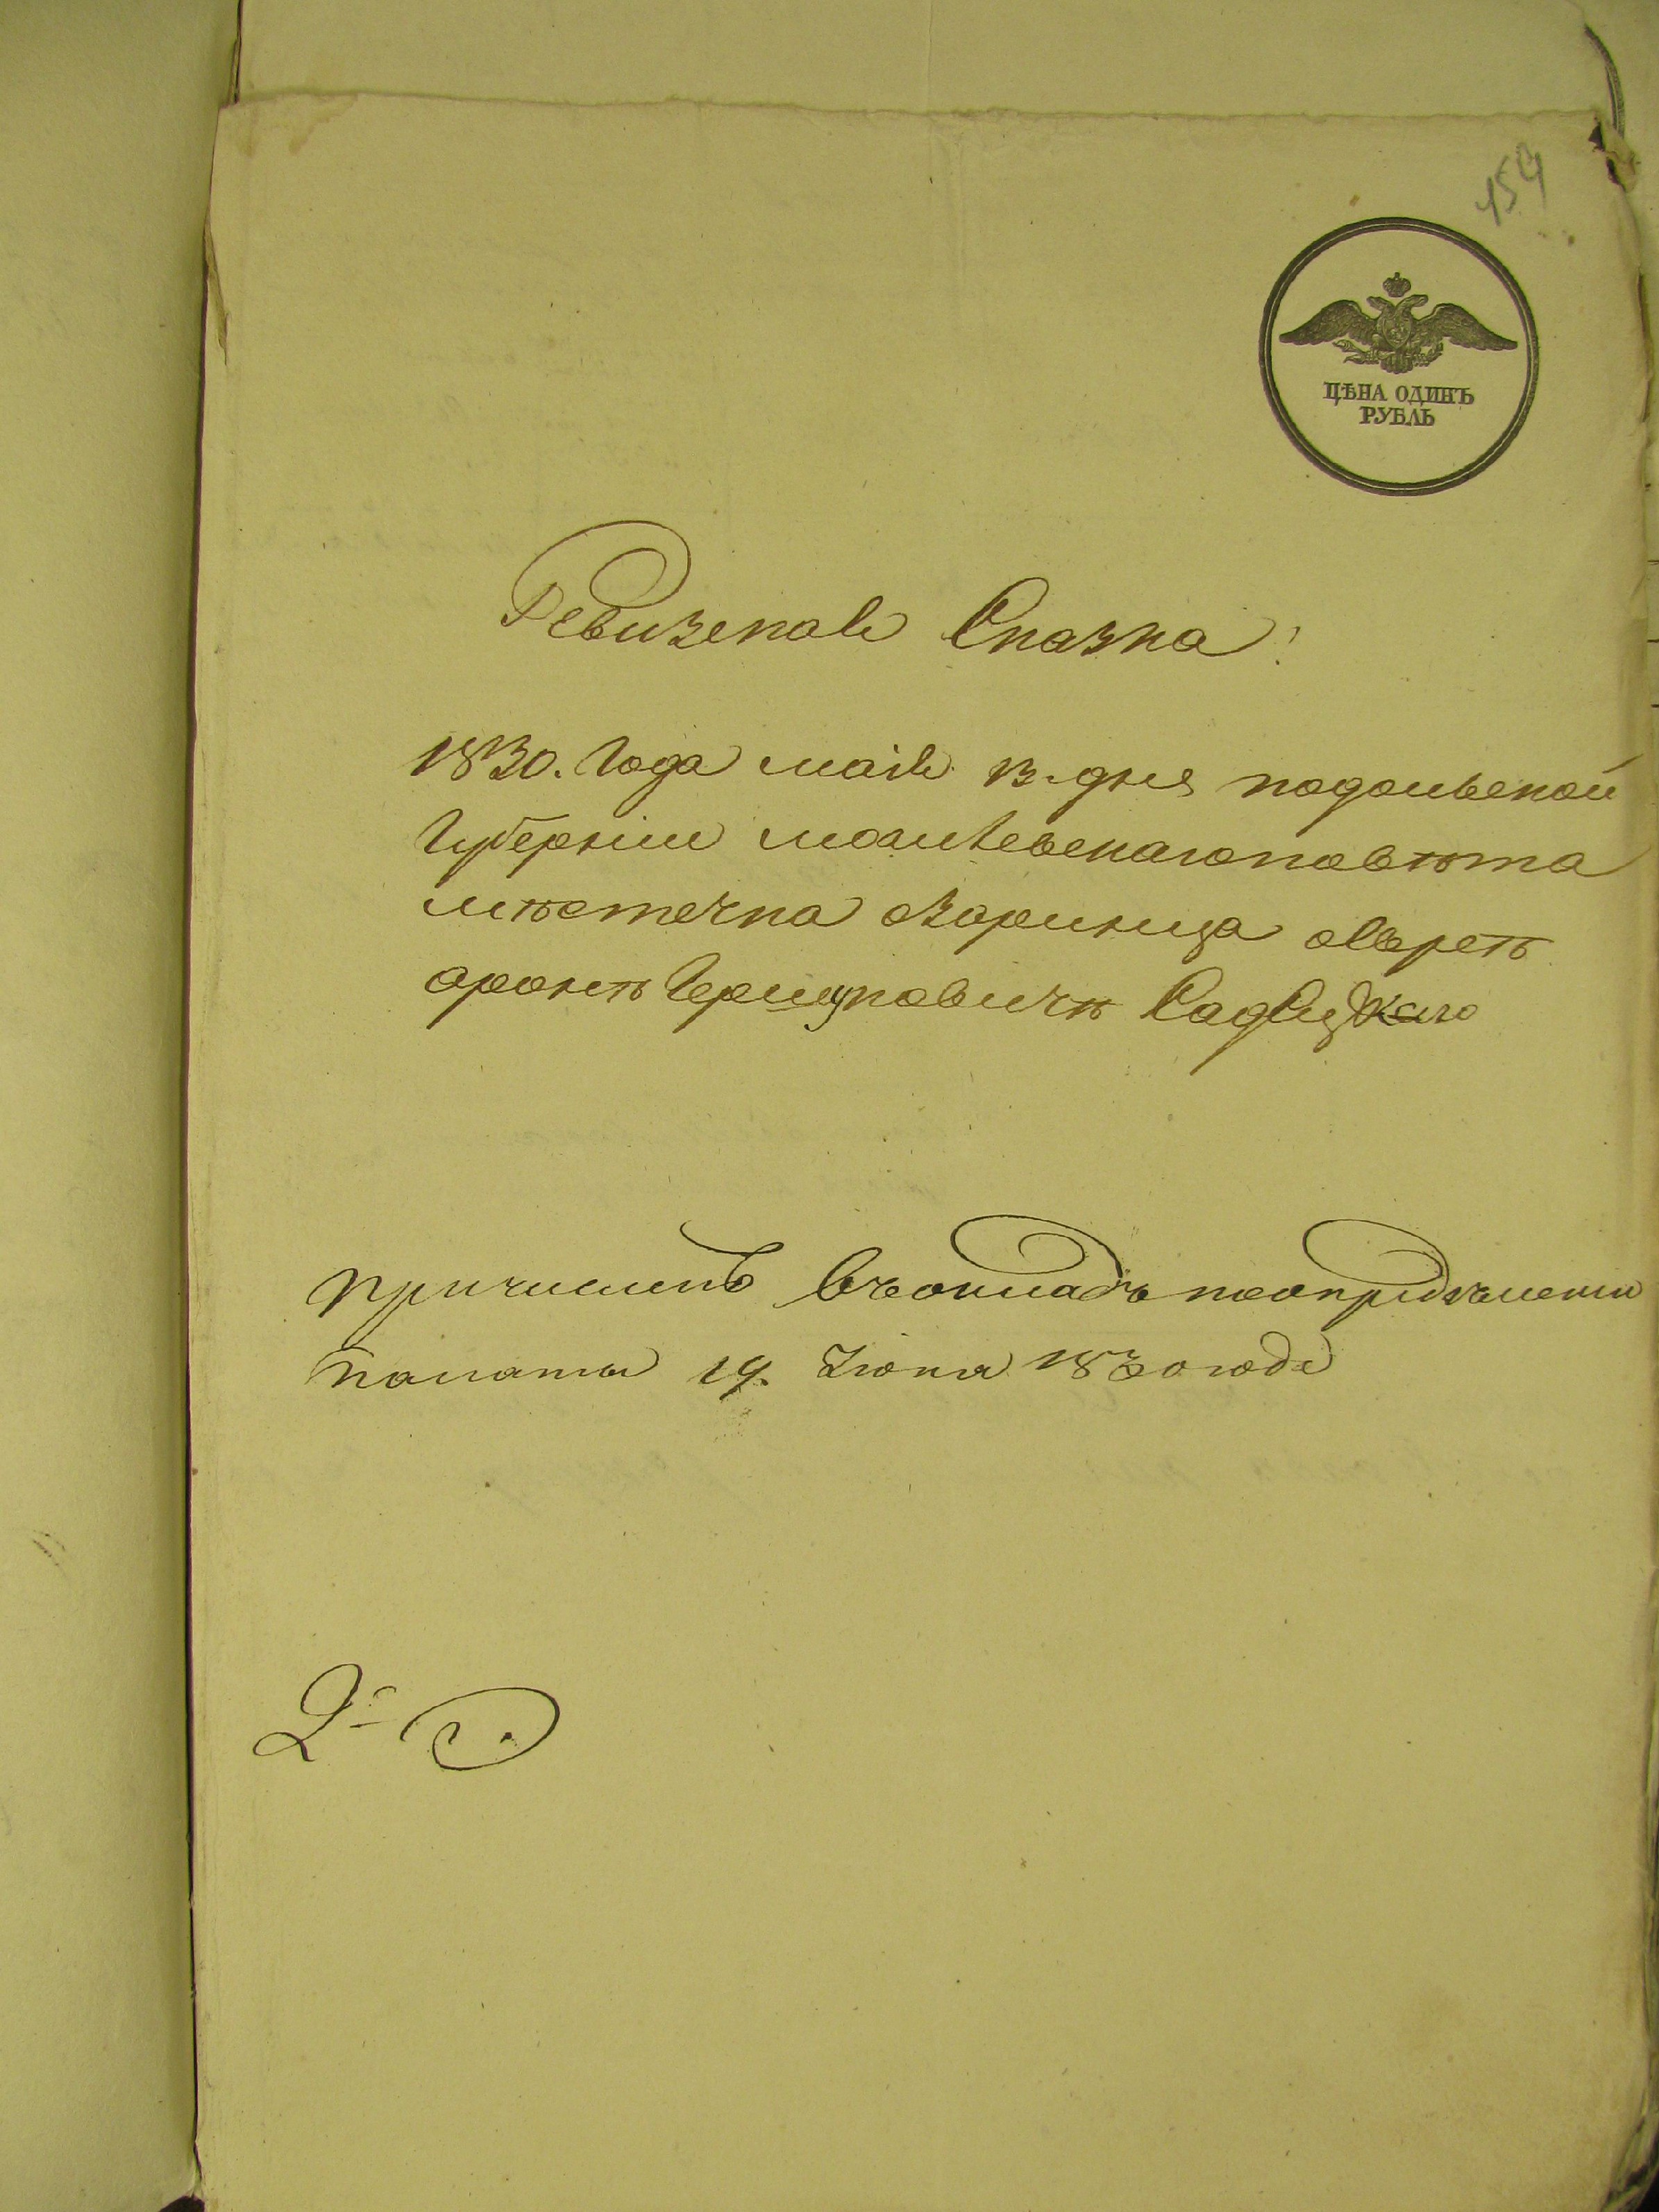 454
ЦѢНА ОДИНЪ
РУБЛЬ
Ревизская Сказка
1830. Года мая 13 дня подольской
Губернии могилевскаго повѣта
мѣстечка озаринца Еврея
Гершковича
причисленъ въ окладъ по опредѣлении
палаты 19. Июня 1830 года